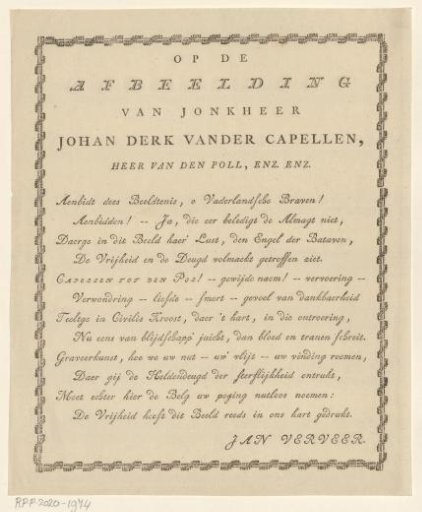 OP DE
AFBEELDING
VAN JONKHEER
JOHAN DERK VANDER CAPELLEN,
HEER VAN DEN POLL, ENZ. ENZ.
Aenbidt dees Beeldtenis, o Vaderlandsche Braven!
Aenbidden! -- Ja, die eer beledigt de Almagt niet,
Daerze in dit Beeld haer' Lust, den Engel der Bataven,
De Vrijheid en de Deugd volmaekt getroffen ziet.
CAPELLEN TOT DEN POL! -- gewijde naem! -- vervoering --
Verwondring -- liefde -- smert -- gevoel van dankbaerheid
Teeltge in Civilis Kroost, daer 't hart, in die ontroering,
Nu eens van blijdschapp' juicht, dan bloed en tranen schreit.
Graveerkunst, hoe we uw nut -- uw' vlijt -- uw vinding roemen,
Daer gij de Heldendeugd der sterflijkheid ontrukt,
Moet echter hier de Belg uw poging nutloos noemen:
De Vrijheid heeft dit Beeld reeds in ons hart gedrukt.
JAN VERVEER.
RPP-2020-1974